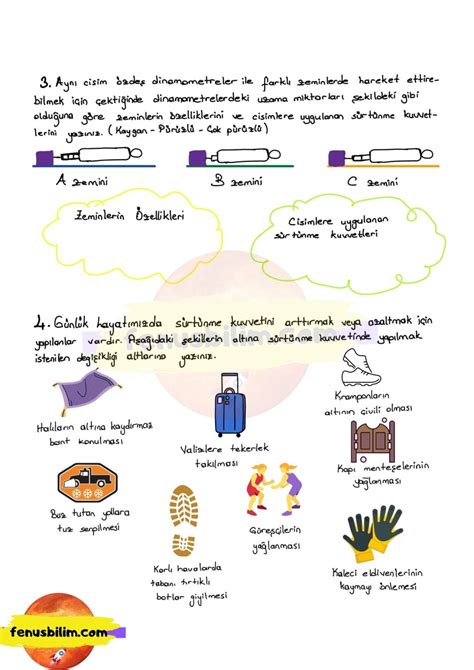 3. Aynı cisim özdeş dinamometreler ile farklı zeminlerde hareket ettire-
bilmek için çektiğinde dinamometrelerdeki uzama miktarları şekildeki gibi
olduğuna göre zeminlerin özelliklerini ve cisimlere uygulanan sürtünme kuvvet-
lerini yazınız. (Kaygan - Pürüzlü - Çok pürüzlü)
A zemini
B zemini
C zemini
Zeminlerin Özellikleri
Cisimlere uygulanan
sürtünme kuvvetleri
fenusbilim.com
4. Günlük hayatımızda sürtünme kuvvetini arttırmak veya azaltmak için
yapılanlar vardır. Aşağıdaki şekillerin altına sürtünme kuvvetinde yapılmak
istenilen değişikliği altlarına yazınız.
Halıların altına kaydırmaz
bant konulması
Valizlere tekerlek
takılması
Kramponların
altının çivili olması
Kapı menteşelerinin
yağlanması
Buz tutan yollara
tuz serpilmesi
Güreşçilerin
yağlanması
Karlı havalarda
tabanı tırtıklı
botlar giyilmesi
Kaleci eldivenlerinin
kaymayı önlemesi
fenusbilim.com